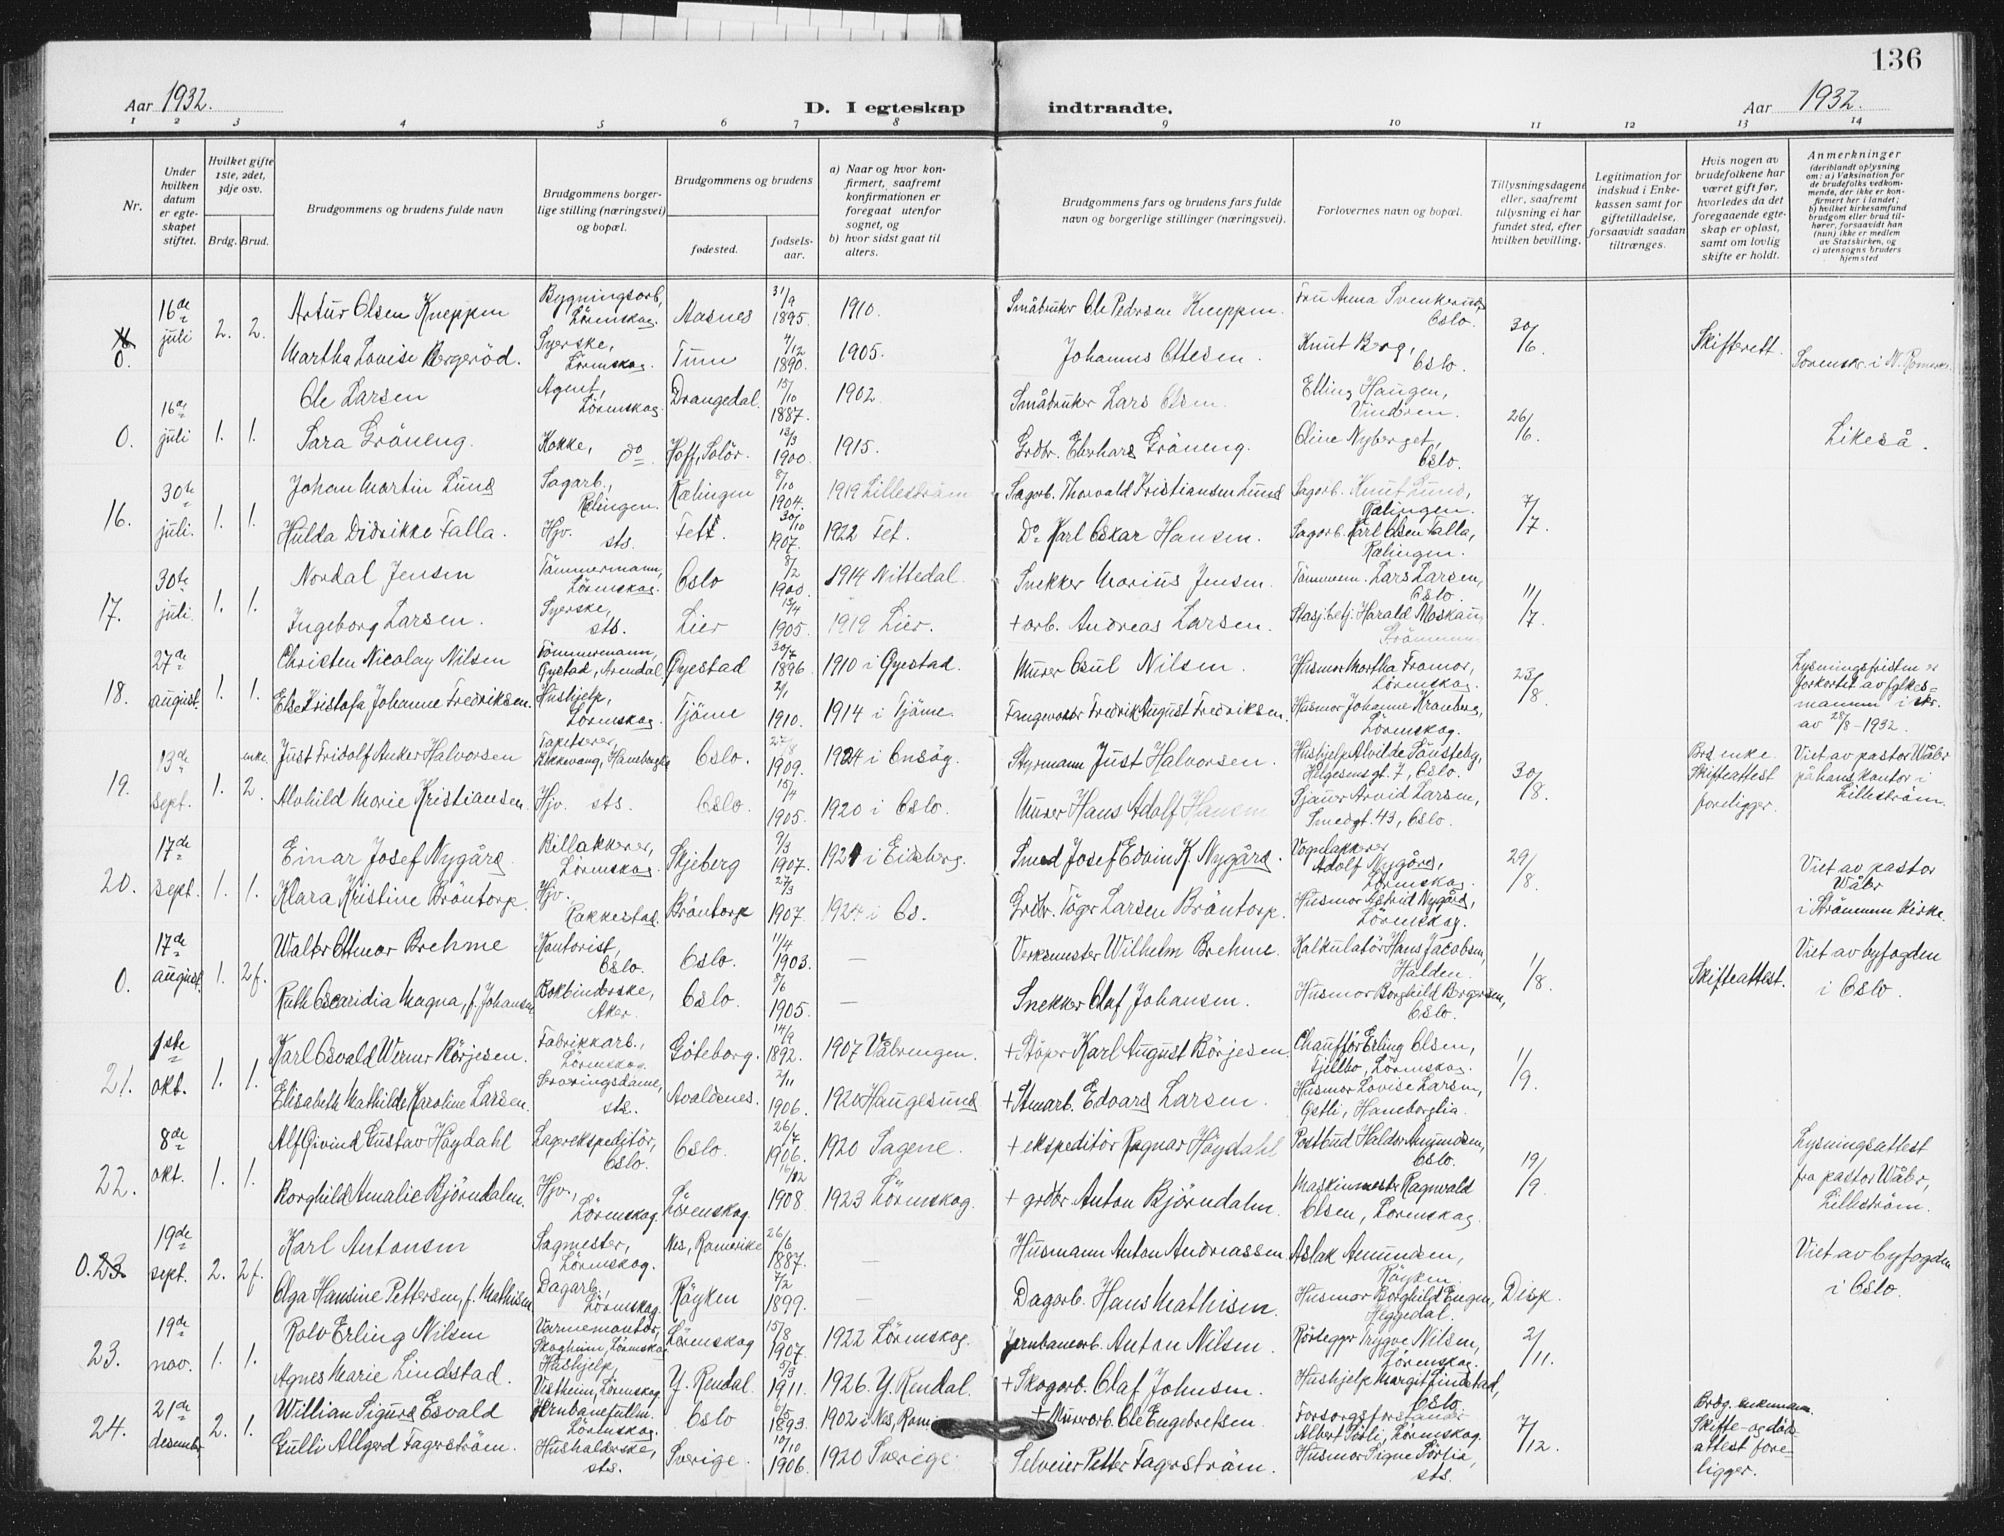 136
Aar 1932.
D. I egteskap indtraadte.
Aar 1932.
1 2 3 4 5 6 7 8 9 10 11 12 13 14
Nr.
Under hvilken datum er egteskapet stiftet.
Hvilket gifte 1ste, 2det, 3dje osv.
Brdg. Brud.
Brudgommens og brudens fulde navn
Brudgommens borgerlige stilling (næringsvei) og bopæl.
Brudgommens og brudens
fødested.
fødselsaar.
a) Naar og hvor konfirmert, saafremt konfirmationen er foregaat utenfor sognet, og
b) hvor sidst gaat til alters.
Brudgommens fars og brudens fars fulde navn og borgerlige stillinger (næringsvei).
Forlovernes navn og bopæl.
Tillysningsdagene eller, saafremt tillysning ei har fundet sted, efter hvilken bevilling.
Legitimation for indskud i Enkekassen samt for giftetilladelse, forsaavidt saadan tiltrænges.
Hvis nogen av brudefolkene har været gift før, hvorledes da det foregaaende egteskap er opløst, samt om lovlig skifte er holdt.
Anmerkninger
(deriblandt oplysning om: a) Vaksination for de brudefolks vedkommende, der ikke er konfirmert her i landet; b) hvilket kirkesamfund brudgom eller brud tilhører, forsaavidt han (hun) ikke er medlem av Statskirken, og c) utensogns bruders hjemsted
0. 16de juli 2. 2.
Artur Olsen Kneppen Bygningsarb., Lörenskog. Aasnes 31/9 1895. 1910. Småbruker Ole Pedersen Kneppen. Fru Anna Svenkerud, Oslo. 30/6.
Martha Lovise Bergeröd. Syerske, Lörenskog. Tune 7/12 1890. 1905. Johannes Ottesen. Knut Berg, Oslo. Skifterett. Sorenskr. i N. Romerike
0. 16de juli 1. 1.
Ole Larsen Agent, Lörenskog. Drangedal. 15/10 1887. 1902. Småbruker Lars Olsen. Elling Haugen, Vinderen. 26/6.
Sara Gröneng. Kokke, do Hoff, Solör. 13/3 1900. 1915. Grdbr. Eberhard Gröneng. Oline Nyberget, Oslo. Likeså.
16. 30te juli. 1. 1.
Johan Martin Lund Sagarb., Rælingen. Rælingen 8/10 1904. 1919 Lilleström Sagarb. Thorvald Kristiansen Lund Sagarb. Knut Lund, Rælingen. 7/7.
Hulda Didrikke Falla. Hjv. sts. Fett. 30/10 1907. 1922 Fet. Do Karl Oskar Hansen. Sagarb. Karl Olsen Falla, Rælingen.
17. 30te juli. 1. 1.
Nordal Jensen Tömmermann, Lörenskog. Oslo 8/2 1900. 1914 Nittedal. Snekker Marius Jensen. Tömmerm. Lars Larsen, Oslo. 11/7.
Ingeborg Larsen. Syerske, sts. Lier 13/4 1905. 1919 Lier. + arb. Andreas Larsen. Stasj.betj. Harald Moskaug, Strömmen.
18. 27de august. 1. 1.
Christen Nicolay Nilsen Tömmermann, Öyestad, Arendal Öyestad 30/7 1896 1910 i Öyestad. Murer Osul Nilsen. Husmor Martha Framor, Lörenskog. 23/8
Else Kristofa Johanne Fredriksen. Hushjelp, Lörenskog. Tjöme 2/1 1910. 1914 i Tjöme. Fangevokter Fredrik August Fredriksen. Husmor Johanne Kranberg, Lörenskog. Lysningsfristen er forkortet av fylkesmannen i skr. av 28/8-1932.
19. 13de sept. 1. enke 2.
Just Fridolf Anker Halvorsen Tapetserer, Bekkevang, Haneborglia Oslo. 22/8 1909. 1924 i Onsöy. Styrmann Just Halvorsen. Hushjelp Alvilde Sönsteby, Helgesensgt. 7, Oslo. 30/8. Brd. enke. Skifteattest foreligger. Viet av pastor Wåler på hans kontor i Lilleström.
Alvhild Marie Kristiansen. Hjv. sts. Oslo. 15/4 1905. 1920 i Oslo. Murer Hans Adolf Hansen Sjauer Arvid Larsen, Smedgt. 43, Oslo.
20. 17de sept. 1. 1.
Einar Josef Nygård. Billakkerer, Lörenskog. Skjeberg 9/3 1907. 1921 i Eidsberg. Smed Josef Edvin K. Nygård. Vognlakkerer Adolf Nygård, Lörenskog. 29/8.
Klara Kristine Bröntorp. Hjv. Rakkestad. Bröntorp 27/3 1907. 1924 i Os. Grdbr. Töger Larsen Bröntorp. Husmor Astrid Nygård, Lörenskog. Viet av pastor Wåler i Strömmen kirke.
0. 17de august. 1. 2 f.
Walter Ottmar Brehme Kontorist, Oslo. Oslo. 11/4 1903. — Verksmester Wilhelm Brehme Kalkulatör Hans Jacobsen, Halden. 1/8. Skifteattest. Viet av byfogden i Oslo.
Ruth Oscaridia Magna, f. Johansen Bokbinderske, Aker. Oslo. 8/6 1905. — Snekker Olaf Johansen. Husmor Borghild Bergersen, Oslo.
21. 1ste okt. 1. 1.
Karl Osvald Werner Börjesen. Fabrikkarb., Lörenskog. Göteborg. 14/9 1892. 1907 Våbringen. + Stöper Karl August Börjesen. Chaufför Erling Olsen, Fjellbo, Lörenskog. 1/9.
Elisabeth Mathilde Karoline Larsen. Serveringsdame, sts. Avaldsnes. 2/11 1906. 1920 Haugesund + Stenarb. Edvard Larsen. Husmor Lovise Larsen, Östli, Haneborglia.
22. 8de okt. 1. 1.
Alf Öivind Gustav Höydahl Lagerekspeditör, Oslo. Oslo. 26/7 1906. 1920 Sagene. + ekspeditör Ragnar Höydahl Postbud Haldor Amundsen, Oslo. 19/9
Borghild Amalie Björndalen. Hjv., Lörenskog. Lörenskog 16/12 1908 1923 Lörenskog. + grdbr. Anton Björndalen. Maskinmester Ragnvald Olsen, Lörenskog. Lysningsattest fra pastor Wåler, Lilleström.
0. 23. 19de sept. 2. 2 f.
Karl Antonsen Sagmester, Lörenskog. Nes, Romerike 26/6 1887. — Husmann Anton Andreassen Aslak Amundsen, Röyken. Viet av byfogden i Oslo.
Olga Hansine Pettersen, f. Mathisen Dagarb., Lörenskog. Röyken 7/2 1899. — Dagarb. Hans Mathisen. Husmor Borghild Engen, Heggedal. Disp.
23. 19de nov. 1. 1.
Rolv Erling Nilsen Varmemontör, Skogheim, Lörenskog Lörenskog 15/8 1907. 1922 Lörenskog. Jernbanearb. Anton Nilsen. Rörlegger Trygve Nilsen, Lörenskog. 2/11.
Agnes Marie Lindstad. Hushjelp, Vestheim, Lörenskog. Y. Rendal. 5/3 1911. 1926. Y. Rendal. + Skogarb. Olaf Johnsen. Hushjelp Margit Lindstad, Oslo.
24. 21de desember. 2. 1.
Willian Sigurd Esvald Jernbanefullm. Lörenskog. Oslo 6/5 1893. 1902 i Nes, Rom + Murerarb. Ole Engebretsen. Forsorgsforstander Albert Sörli, Lörenskog. 7/12. Brdg. enkemann. Skifte- og dödsattest foreligger.
Gulli Allgerd Fagerström. Husholderske, sts. Sverige. 10/10 1906. 1920 Sverige. Selveier Petter Fagerström. Husmor Signe Sörlia, sts.